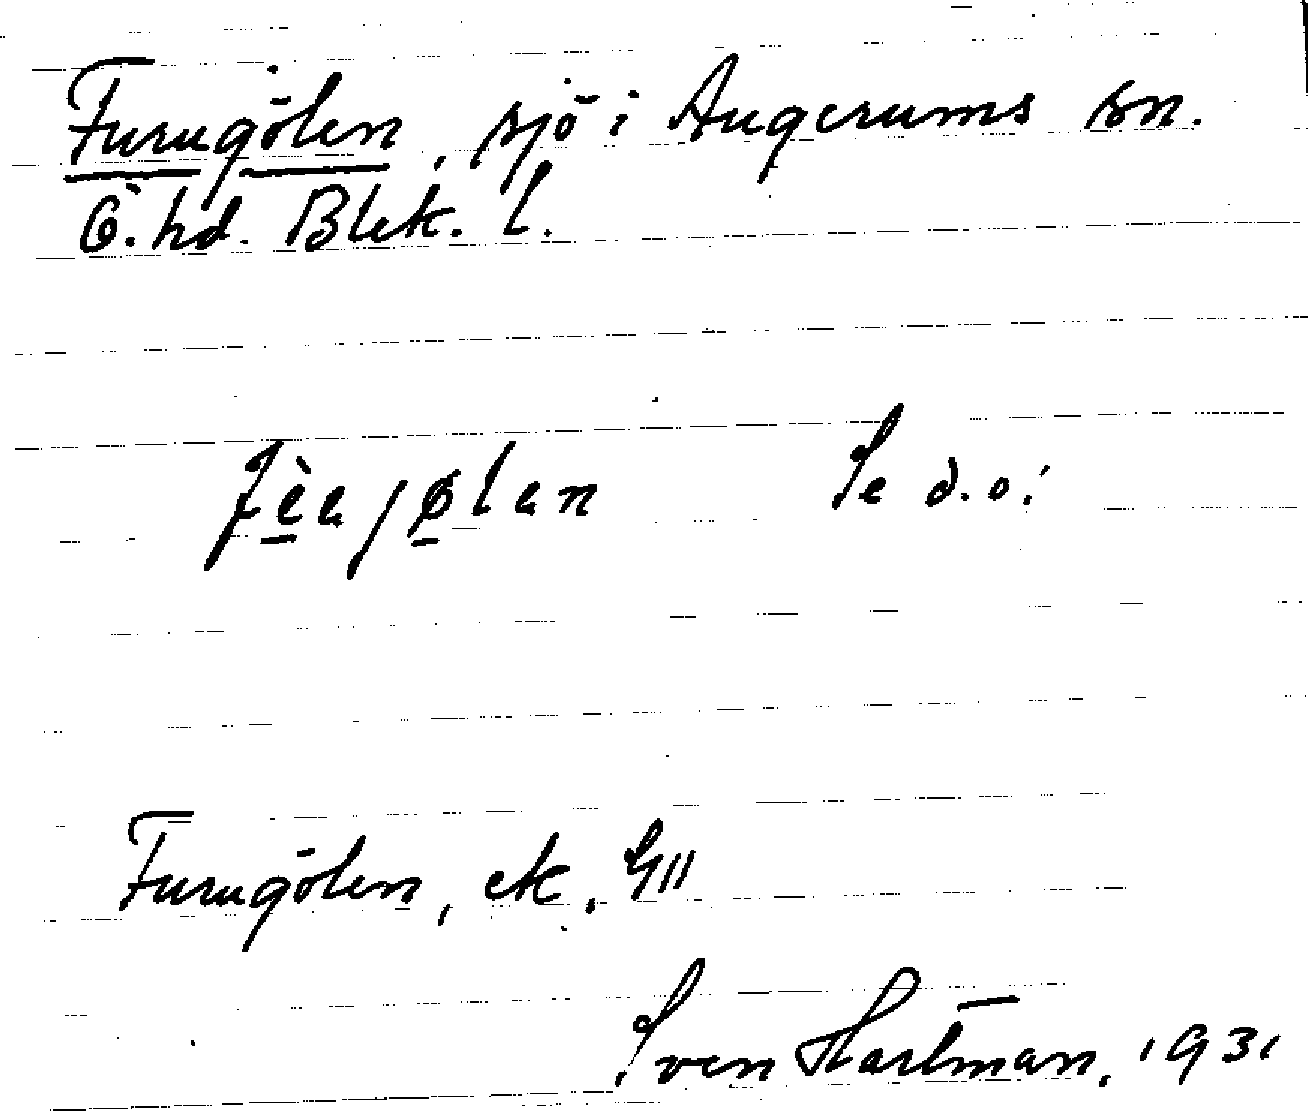 Furugölen, sjö i Augerums sn.
Ö. hd. Blek. l.
Se d.o.!
Furugölen, ek. GII
Sven Hartman, 1931